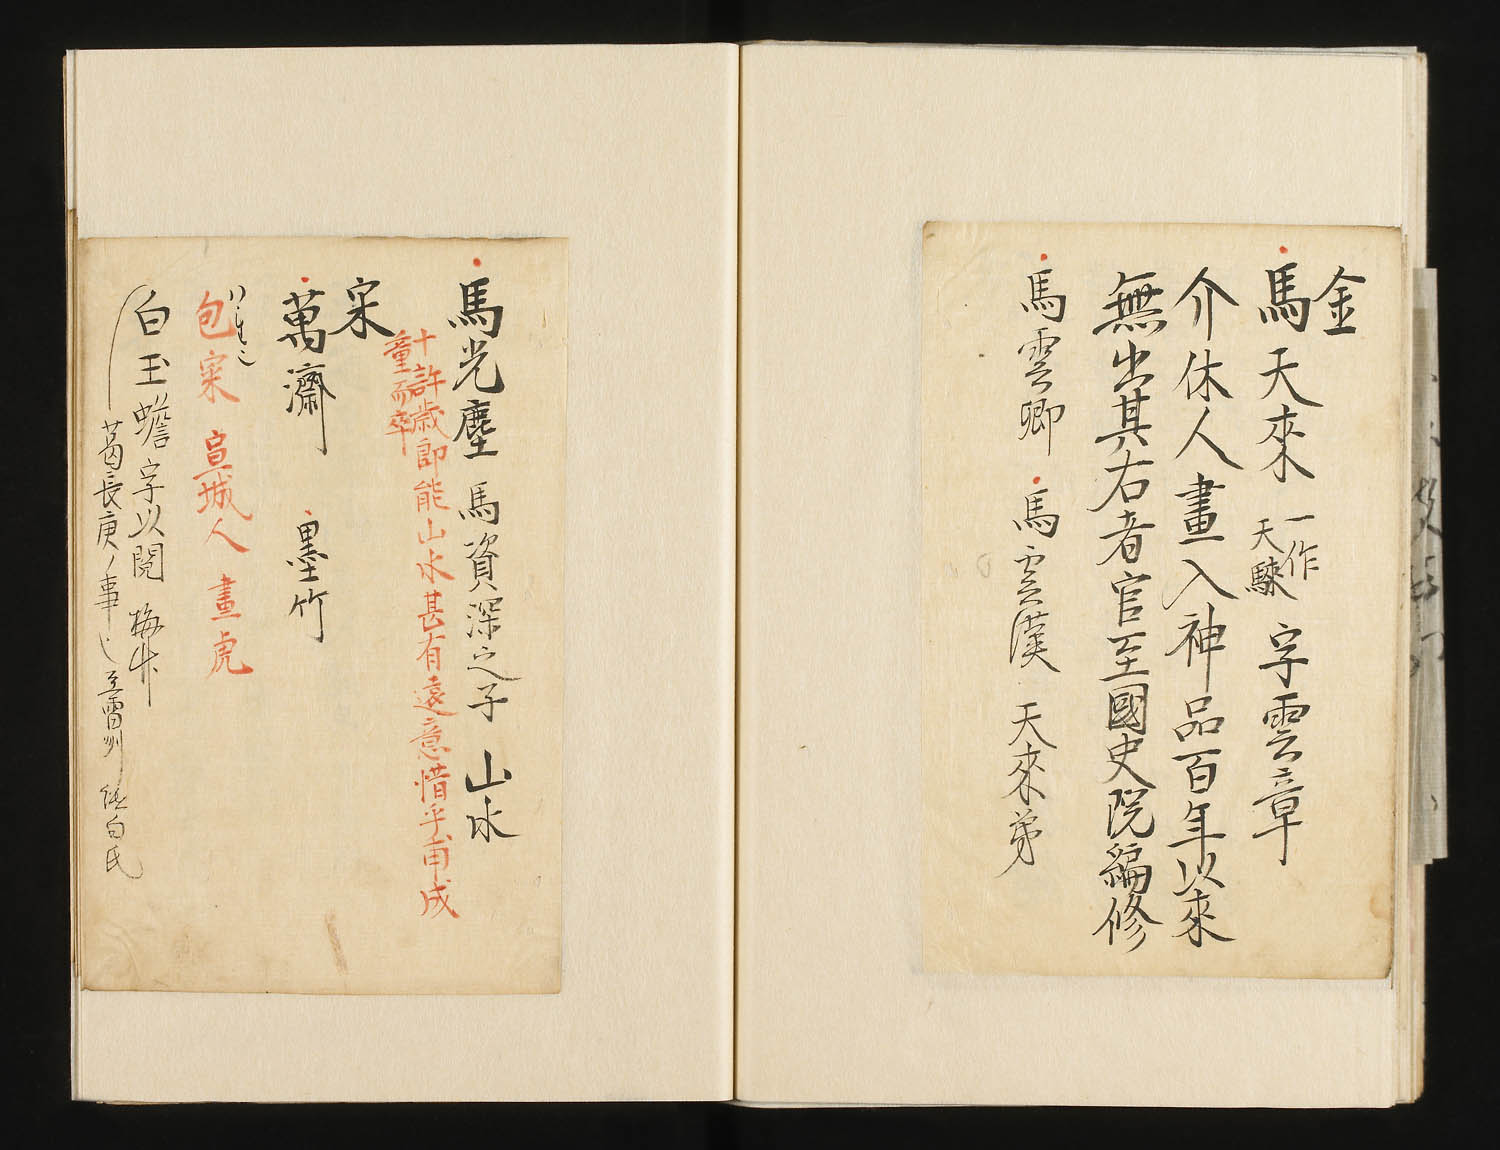 金
馬天來 一作天騋 字雲章
介休人畫入神品百年以來
無出其右者官至國史院編修
馬雲卿 馬雲漢 天來弟
馬光塵 馬資深之子 山水
十許歲即能山水甚有遠意惜乎甫成
童而卒
宋
萬濟 墨竹
包寀 宣城人 畫虎
白玉蟾 字以閲 梅竹
葛長庚ノ事 至雷州 白氏